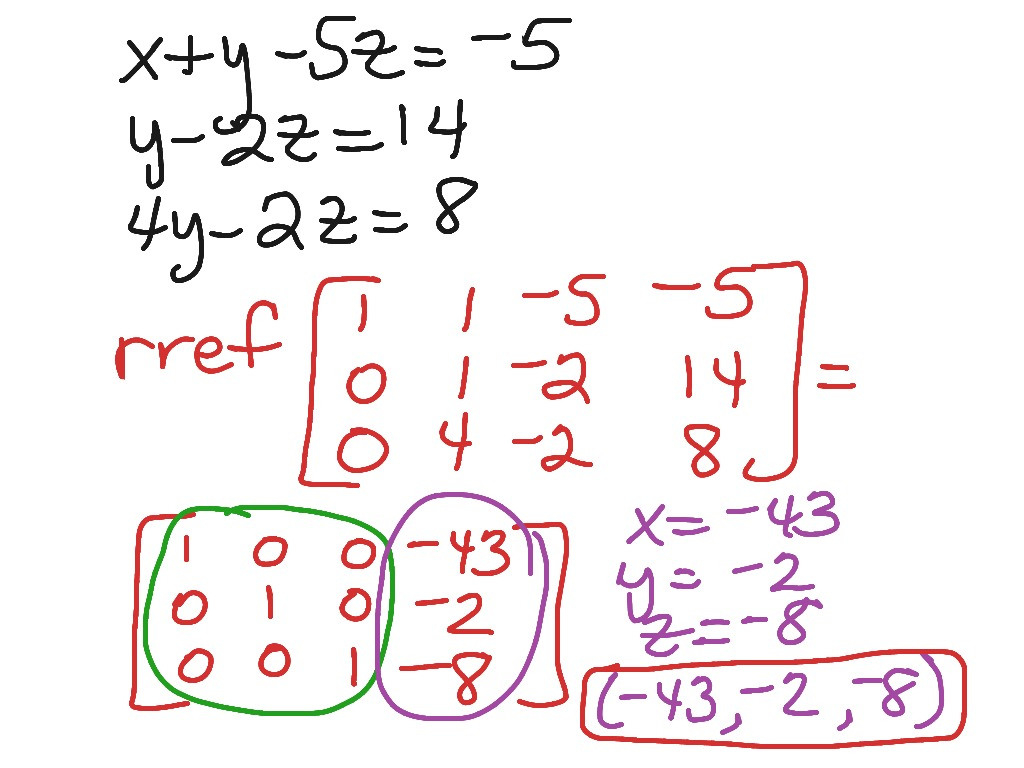 x+y-5z=-5
y-2z=14
4y-2z=8
rref [1 1 -5 -5
0 1 -2 14 =
0 4 -2 8]
[1 0 0 -43
0 1 0 -2
0 0 1 -8]
x=-43
y=-2
z=-8
(-43,-2,-8)